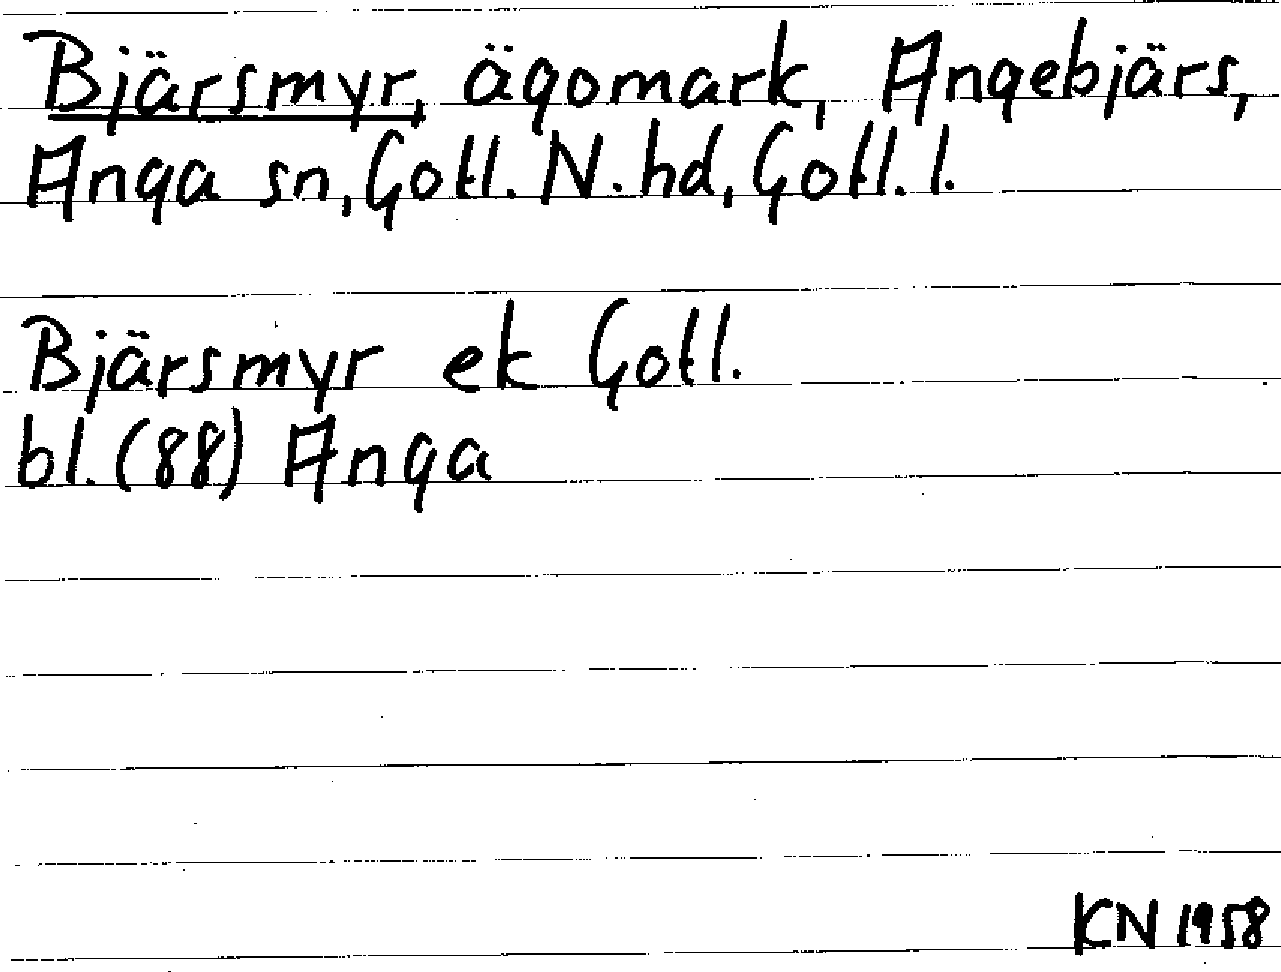 Bjärsmyr, ägomark, Angebjärs,
Anga sn, Gotl. N. hd, Gotl. l.
Bjärsmyr ek Gotl.
bl. (88) Anga
KN 1958